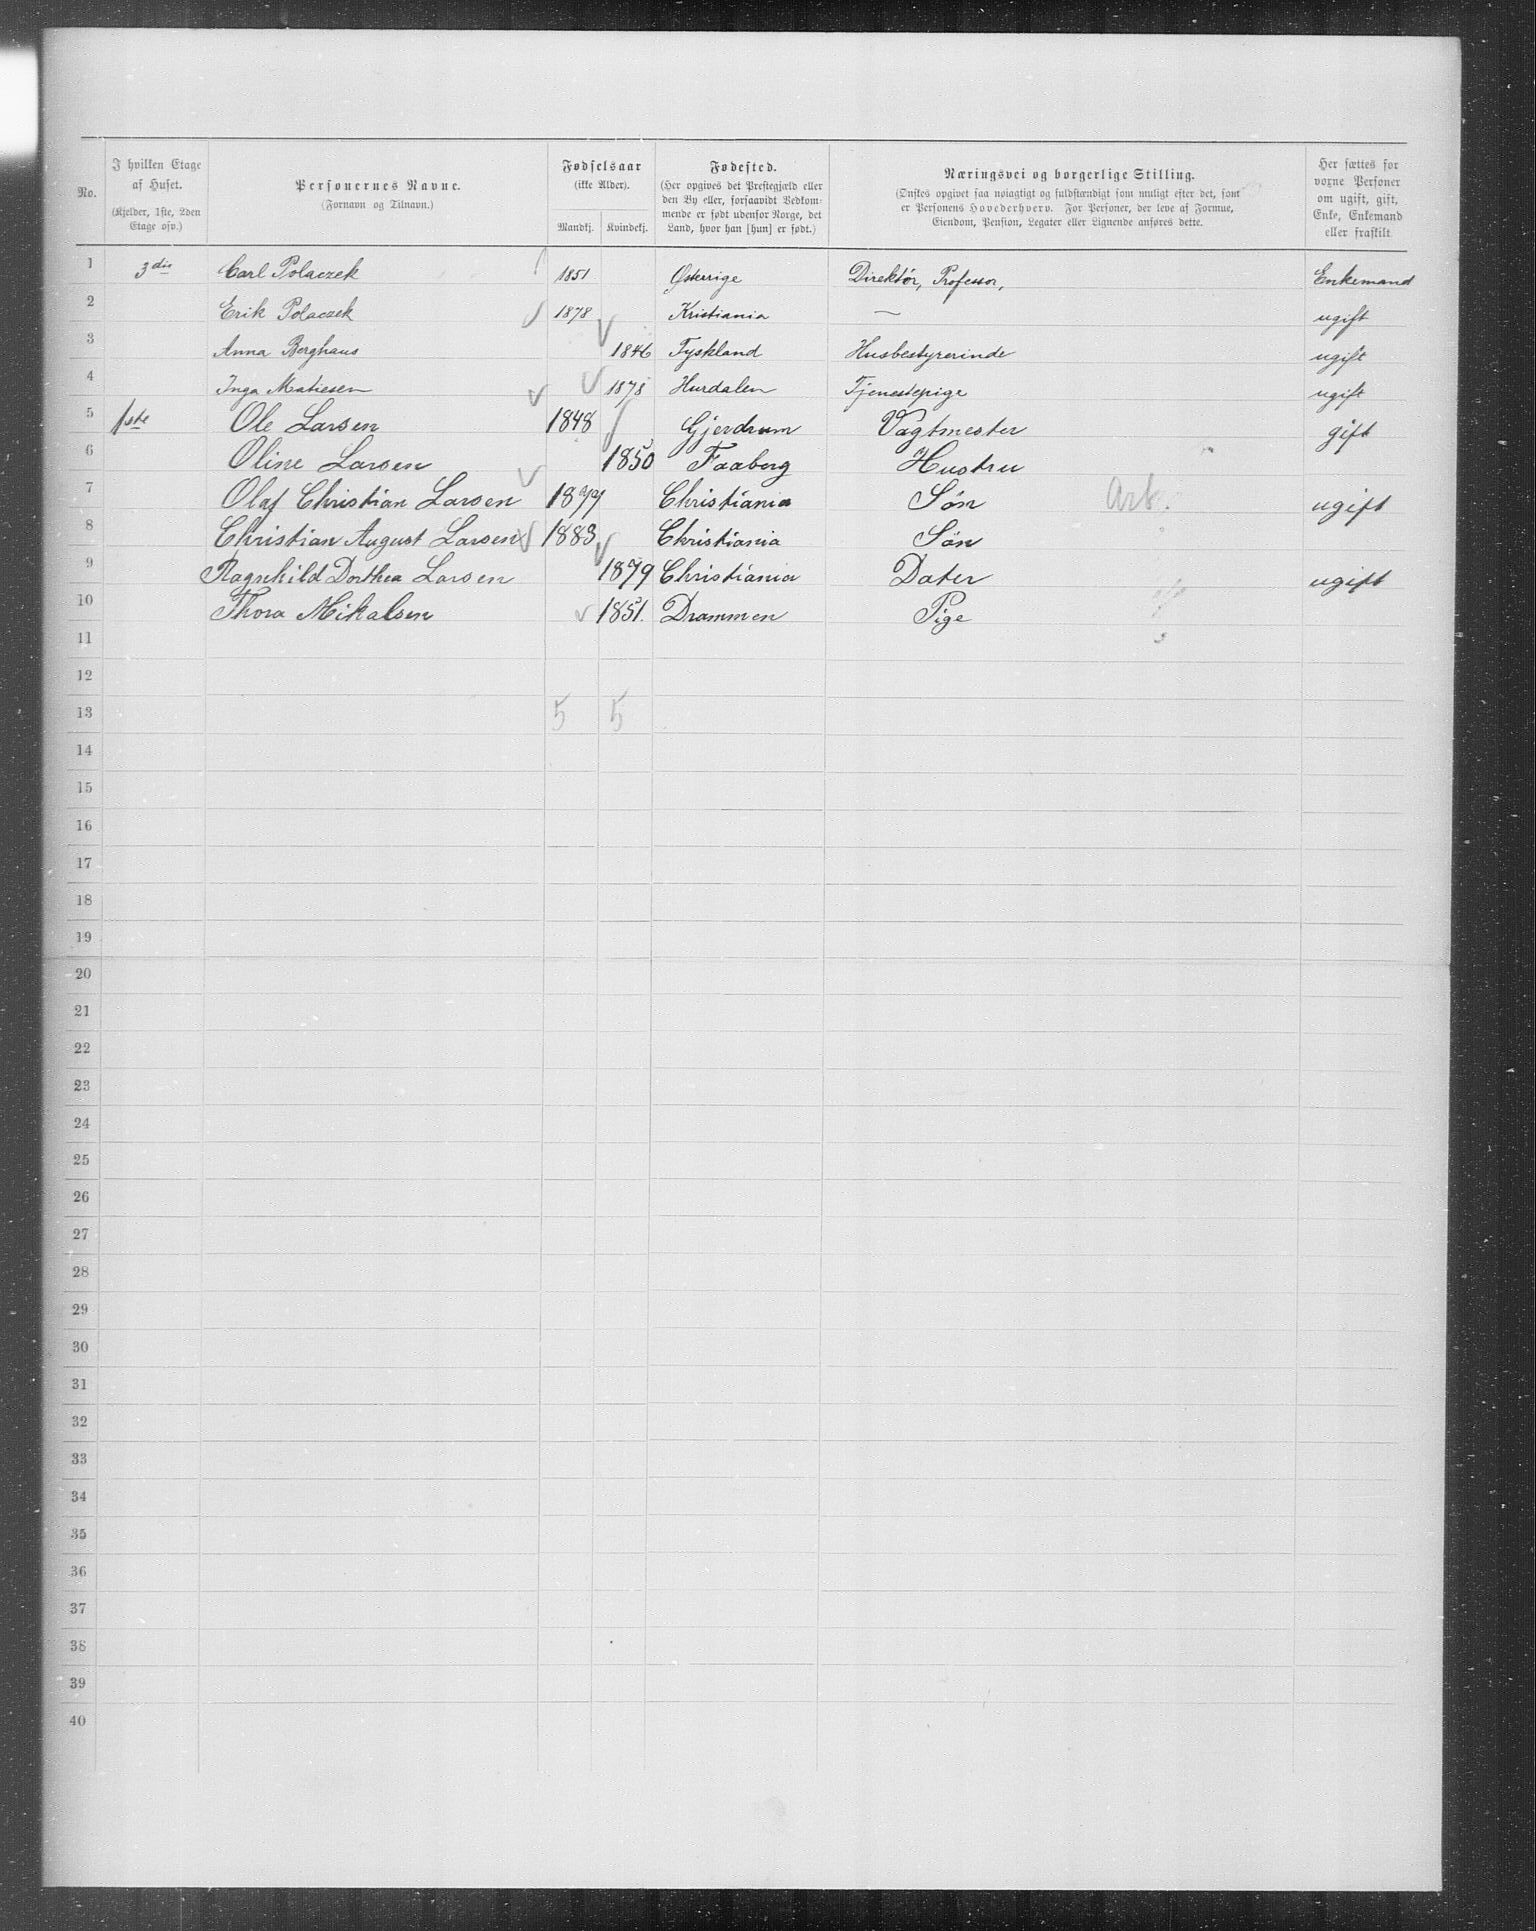 No.
I hvilken Etage af Huset. (Kjelder, 1ste, 2den Etage osv.)
Personernes Navne. (Fornavn og Tilnavn.)
Fødselsaar (ikke Alder).
Mandkj. Kvindekj.
Fødested. (Her opgives det Prestegjæld eller den By eller, forsaavidt Vedkommende er født udenfor Norge, det Land, hvor han [hun] er født.)
Næringsvei og borgerlige Stilling. (Ønskes opgivet saa nøiagtigt og fuldstændigt som muligt efter det, som er Personens Hovederhverv. For Personer, der leve af Formue, Eiendom, Pension, Legater eller Lignende anføres dette.
Her sættes for voxne Personer om ugift, gift, Enke, Enkemand eller fraskilt
1 3die Carl Polaczek 1851 Østerrige Direktór, Professor, Enkemand
2 Erik Polaczek 1878 Kristiania — ugift
3 Anna Berghaus 1846 Tyskland Husbestyrerinde ugift
4 Inga Matiesen 1878 Hurdalen Tjenestepige ugift
5 1ste Ole Larsen 1848 Gjerdrum Vagtmester gift
6 Oline Larsen 1850 Faaberg Hustru
7 Olaf Christian Larsen 1877 Christiania Søn Arb. ugift
8 Christian August Larsen 1883 Christiania Søn
9 Ragnhild Dorthea Larsen 1879 Christiania Dater ugift
10 Thora Mikalsen 1851. Drammen Pige
11
12
13 5 5
14
15
16
17
18
19
20
21
22
23
24
25
26
27
28
29
30
31
32
33
34
35
36
37
38
39
40